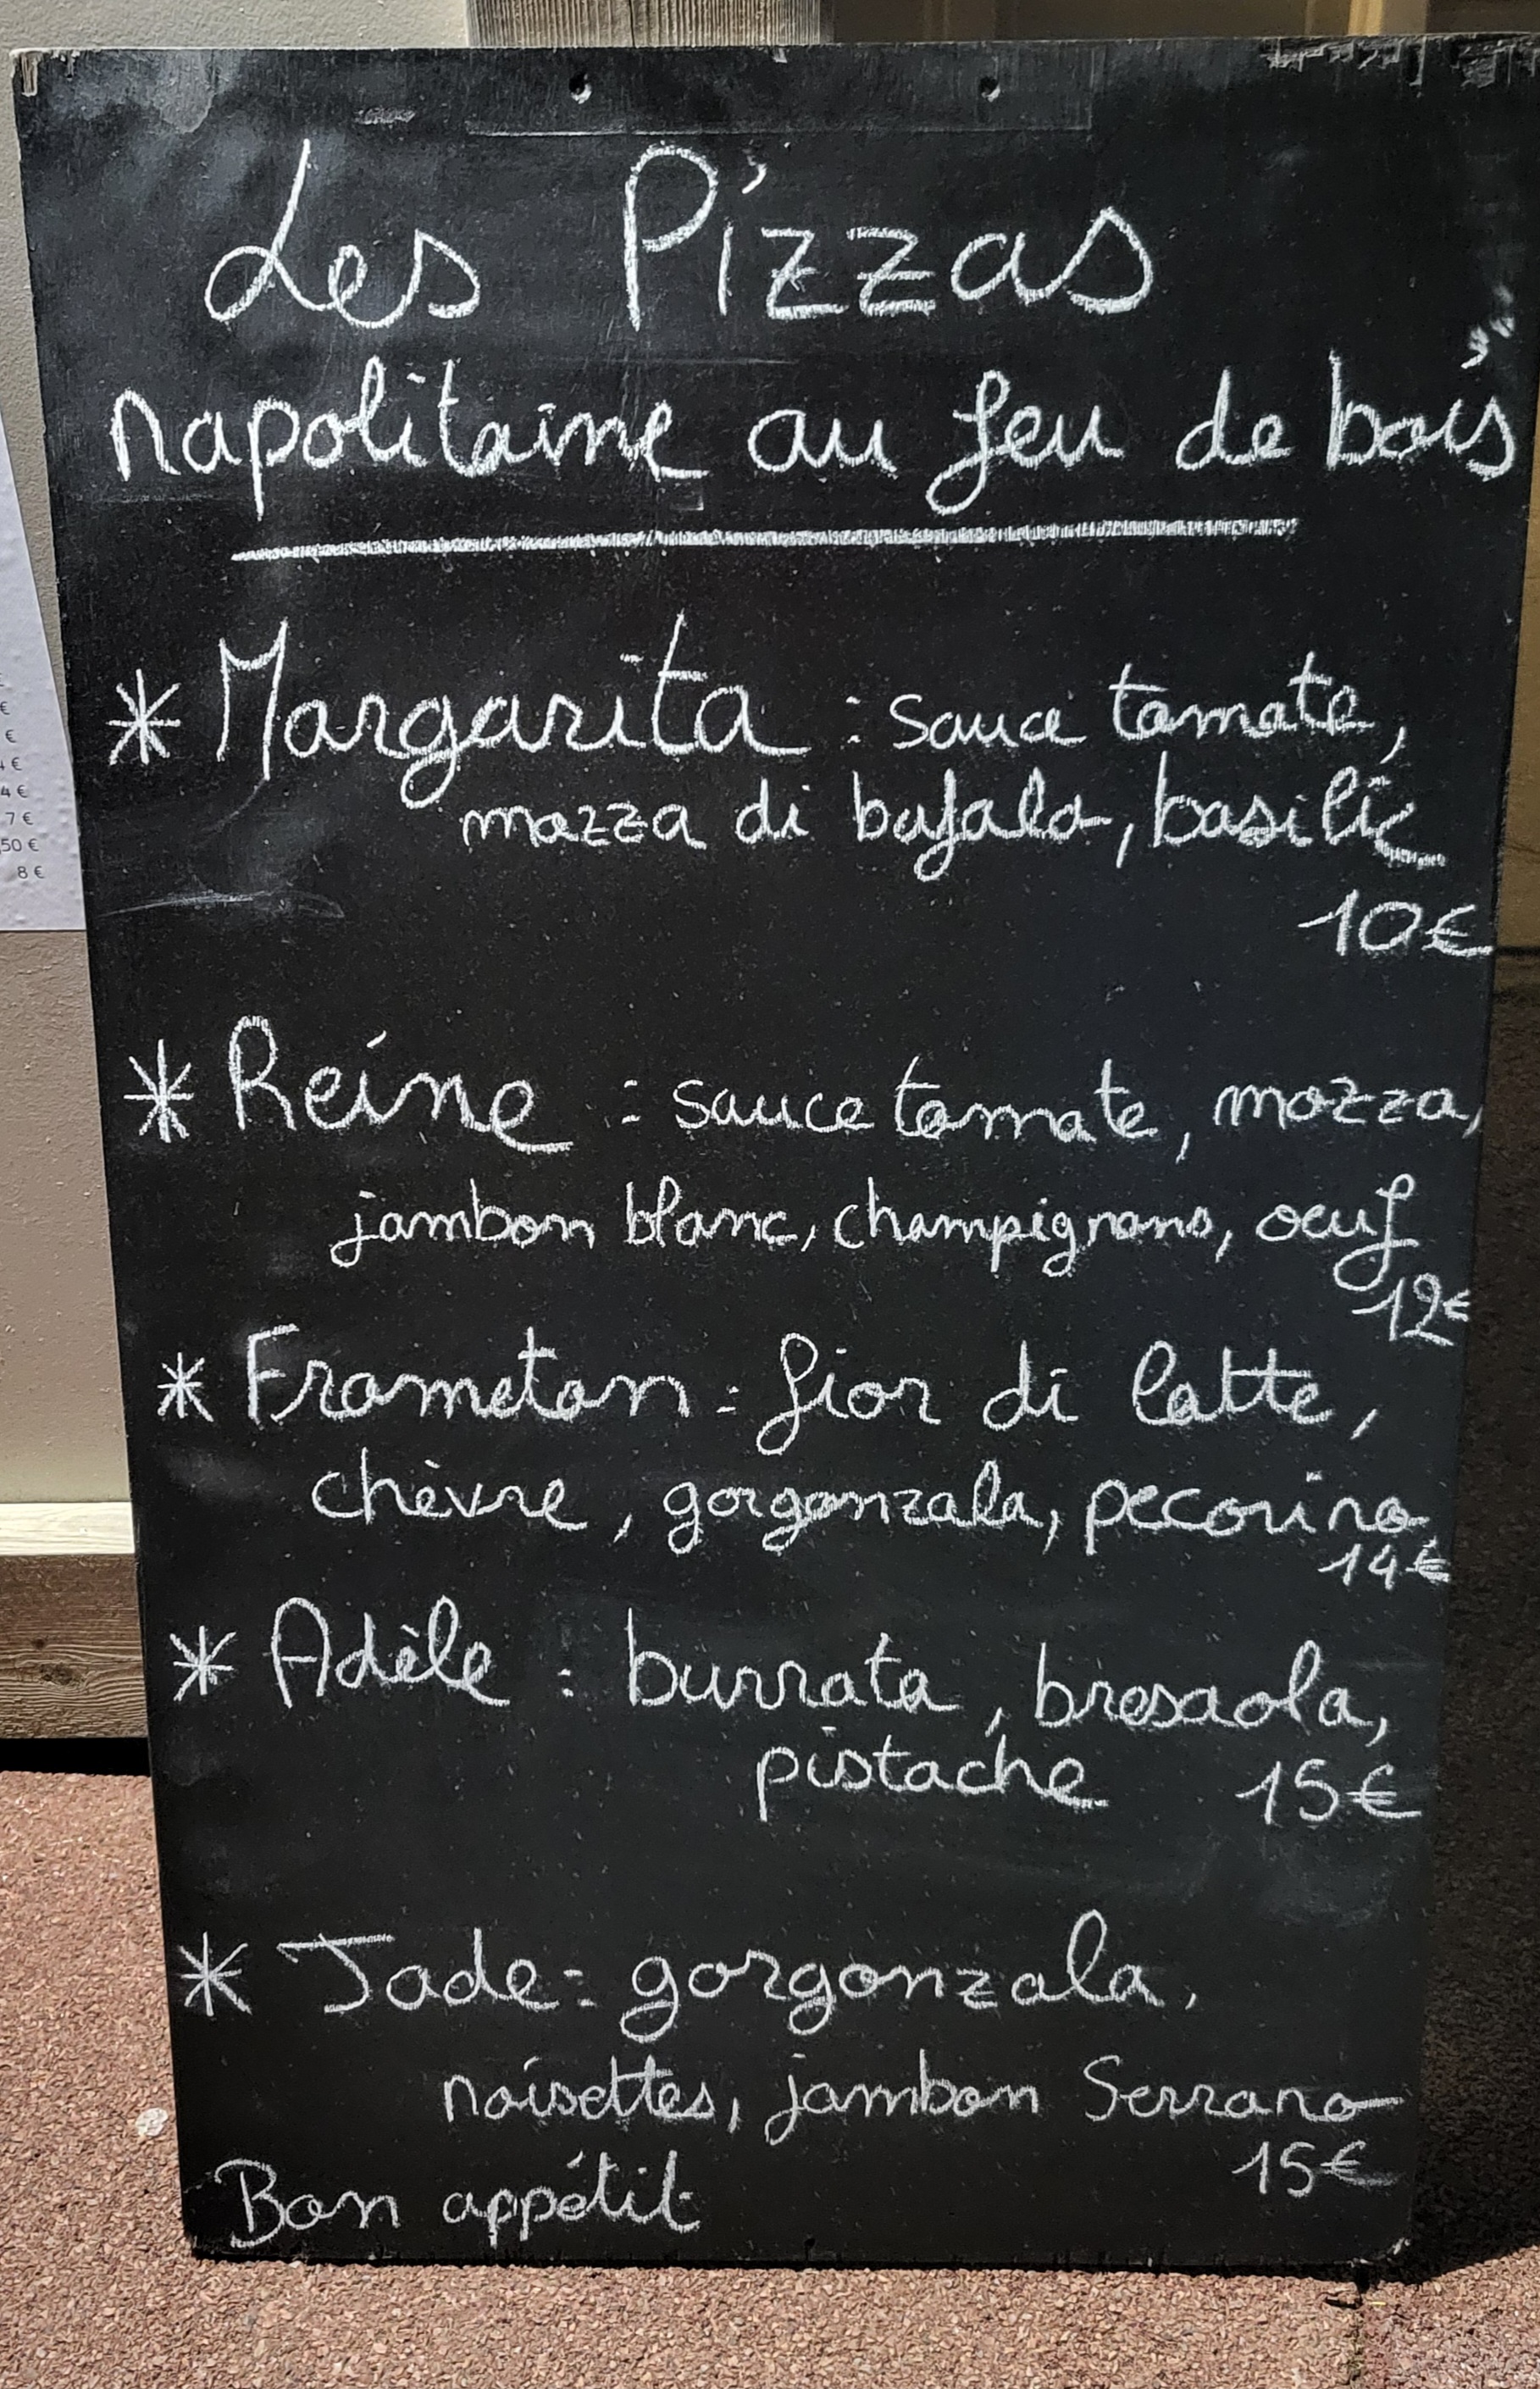 Les Pizzas
napolitaine au feu de bois
* Margarita : sauce tomate,
mozza di bufala, basilic
10€
* Reine : sauce tomate, mozza,
jambon blanc, champignons, oeuf
12€
* Frometon : fior di latte,
chèvre, gorgonzola, pecorino
14€
* Adèle : burrata, bresaola,
pistache 15€
* Jade : gorgonzola,
noisettes, jambon Serrano
15€
Bon appétit
€
€
4 €
4 €
7 €
,50 €
8 €